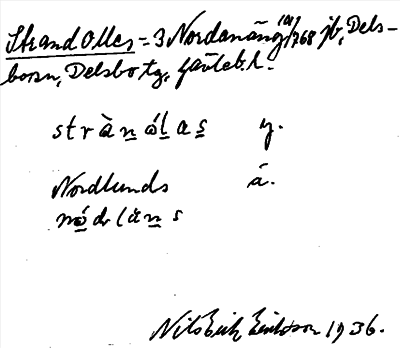 Strand Olles = 3 Nordanäng 1/768 jb, Dels-
boson, Delsbo tg, gävleb. l.
strànólas y.
Nordlunds á.
nódláns
Nils Erik Eriksson 1936.